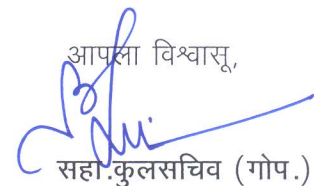 आपला विश्वासू,
सहा.कुलसचिव (गोप.)